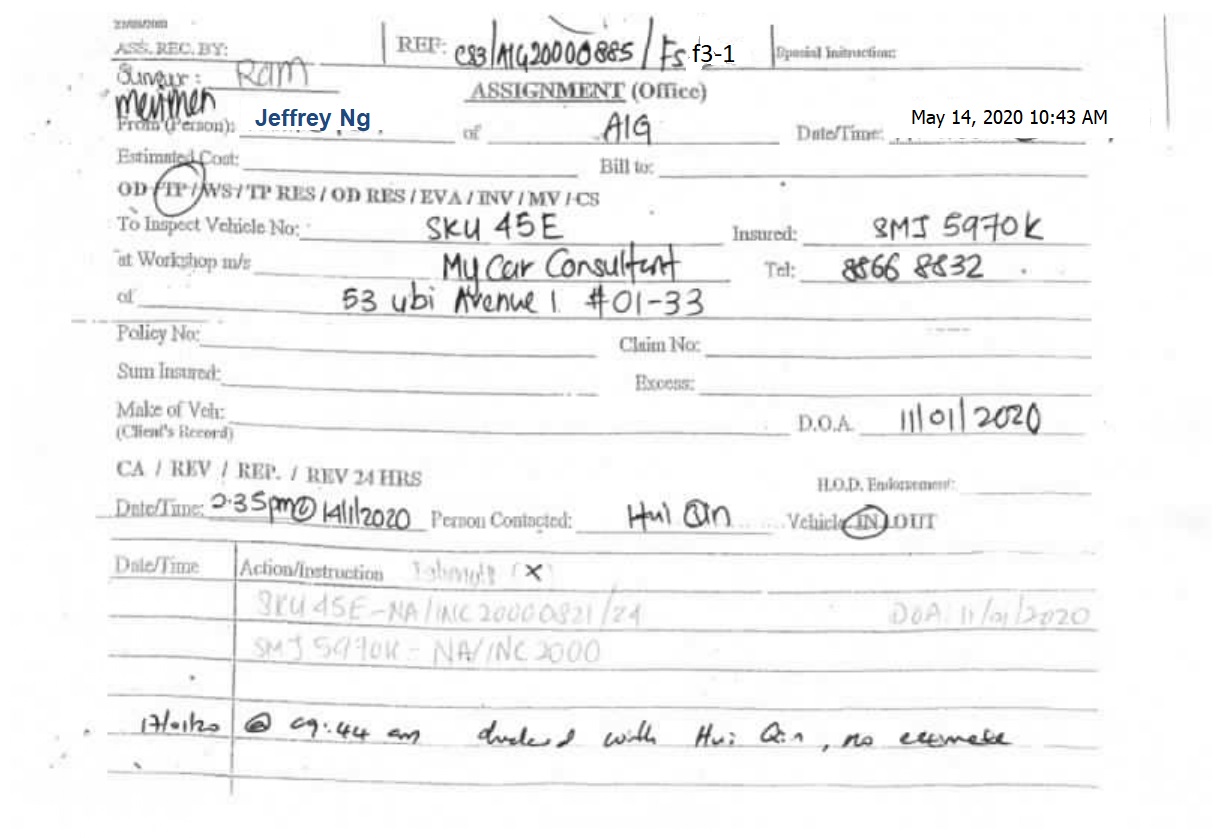 ASS. REC. BY:
REF: CS3/AIG20000885/Fs f3-1
Special Instruction:
Ram
merimen
ASSIGNMENT (Office)
From (Person): Jeffrey Ng of AIG Date/Time: May 14, 2020 10:43 AM
Estimated Cost: Bill to:
OD / TP / WS / TP RES / OD RES / EVA / INV / MV / CS
To Inspect Vehicle No: SKU 45E Insured: SMJ 5970K
at Workshop m/s My Car Consultant Tel: 8866 8832
of 53 ubi Avenue 1 #01-33
Policy No: Claim No:
Sum Insured: Excess:
Make of Veh: D.O.A. 11/01/2020
(Client's Record)
CA / REV / REP. / REV 24 HRS H.O.D. Endorsement:
Date/Time: 2.35pm@ 14/1/2020 Person Contacted: Hui Qin Vehicle IN/OUT
Date/Time Action/Instruction (X)
SKU 45E - NA/INC20000821/24 DOA: 11/01/2020
SMJ 5970K - NA/INC2000
17/01/20 @ 09:44 am with Hui Qin, no estimate